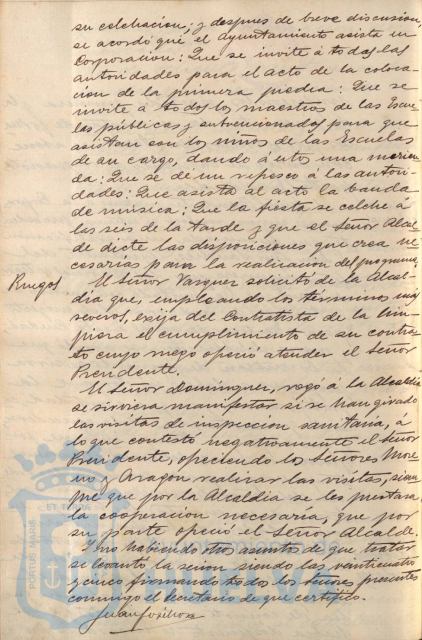 su celebracion; y despues de breve discusion,
se acordó que el Ayuntamiento asista en
Corporacion: Que se invite á todas las
autoridades para el acto de la coloca-
cion de la primera piedra: Que se
invite á todos los maestros de las Escue
las públicas y subvencionados para que
asistan con los niños de las Escuelas
de su cargo, dando á estos una merien
da: Que se dé un refresco á las autori-
dades: Que asista al acto la banda
de música: Que la fiesta se celebre á
las seis de la tarde y que el Señor Alcal
de dicte las disposiciones que crea ne
cesarias para la realizacion del programa.
Ruegos
El Señor Vazquez solicitó de la Alcal-
día que, empleando los términos más
severos, exija del Contratista de la lim-
pieza el cumplimiento de su contra-
to cuyo ruego ofreció atender el Señor
Presidente.
El Señor Dominguez, rogó á la Alcaldía
se sirviera manifestar si se han girado
las visitas de inspeccion sanitaria, á
lo que contestó negativamente el Señor
Presidente, ofreciendo los Señores More
no y Aragon realizar las visitas, siem
pre que por la Alcaldía se les prestara
la cooperacion necesaria, que por
su parte ofreció el Señor Alcalde.
Y no habiendo otros asuntos de que tratar
se levantó la sesion siendo las veinticuatro
y cinco firmando todos los señores presentes
conmigo el Secretario de que certifico.
PORTUS MARIS